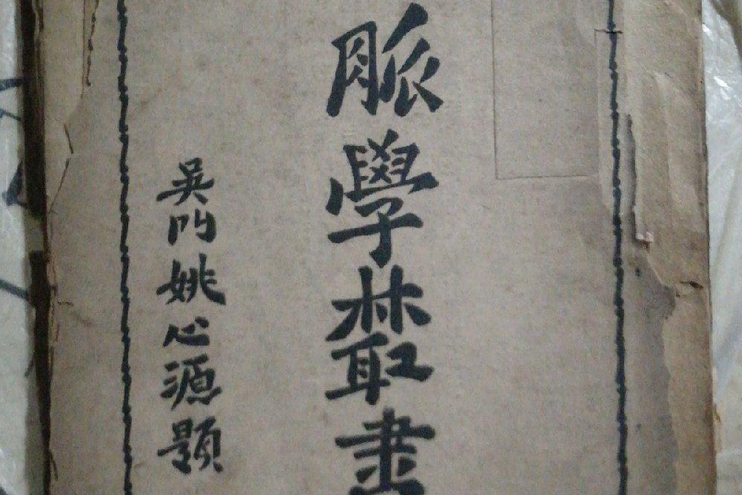 脈學叢書
吳門姚心源題